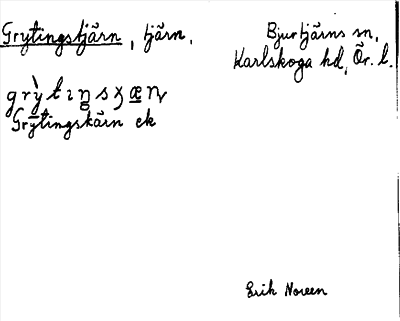 Grytingstjärn, tjärn.
Bjurtjärns sn,
Karlskoga hd, Ör. l.
Grytingskärn ek
Erik Noreen